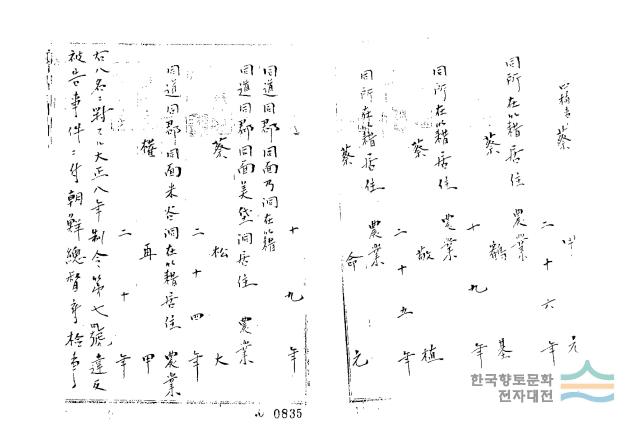 蔡 中 元
二十六年
同所在籍居住 農業
蔡 鶴 基
十九年
同所在籍居住 農業
蔡 敬 植
二十五年
同所在籍居住 農業
蔡 命 元
十九年
同道同郡同面乃洞在籍
同道同郡同面美垈洞居住 農業
蔡 松 大
二十四年
同道同郡同面米谷洞在籍居住 農業
權 再 甲
二十年
右八名ニ對スル大正八年制令第七號違反
被告事件ニ付朝鮮總督府檢事
0835
한국향토문화
전자대전